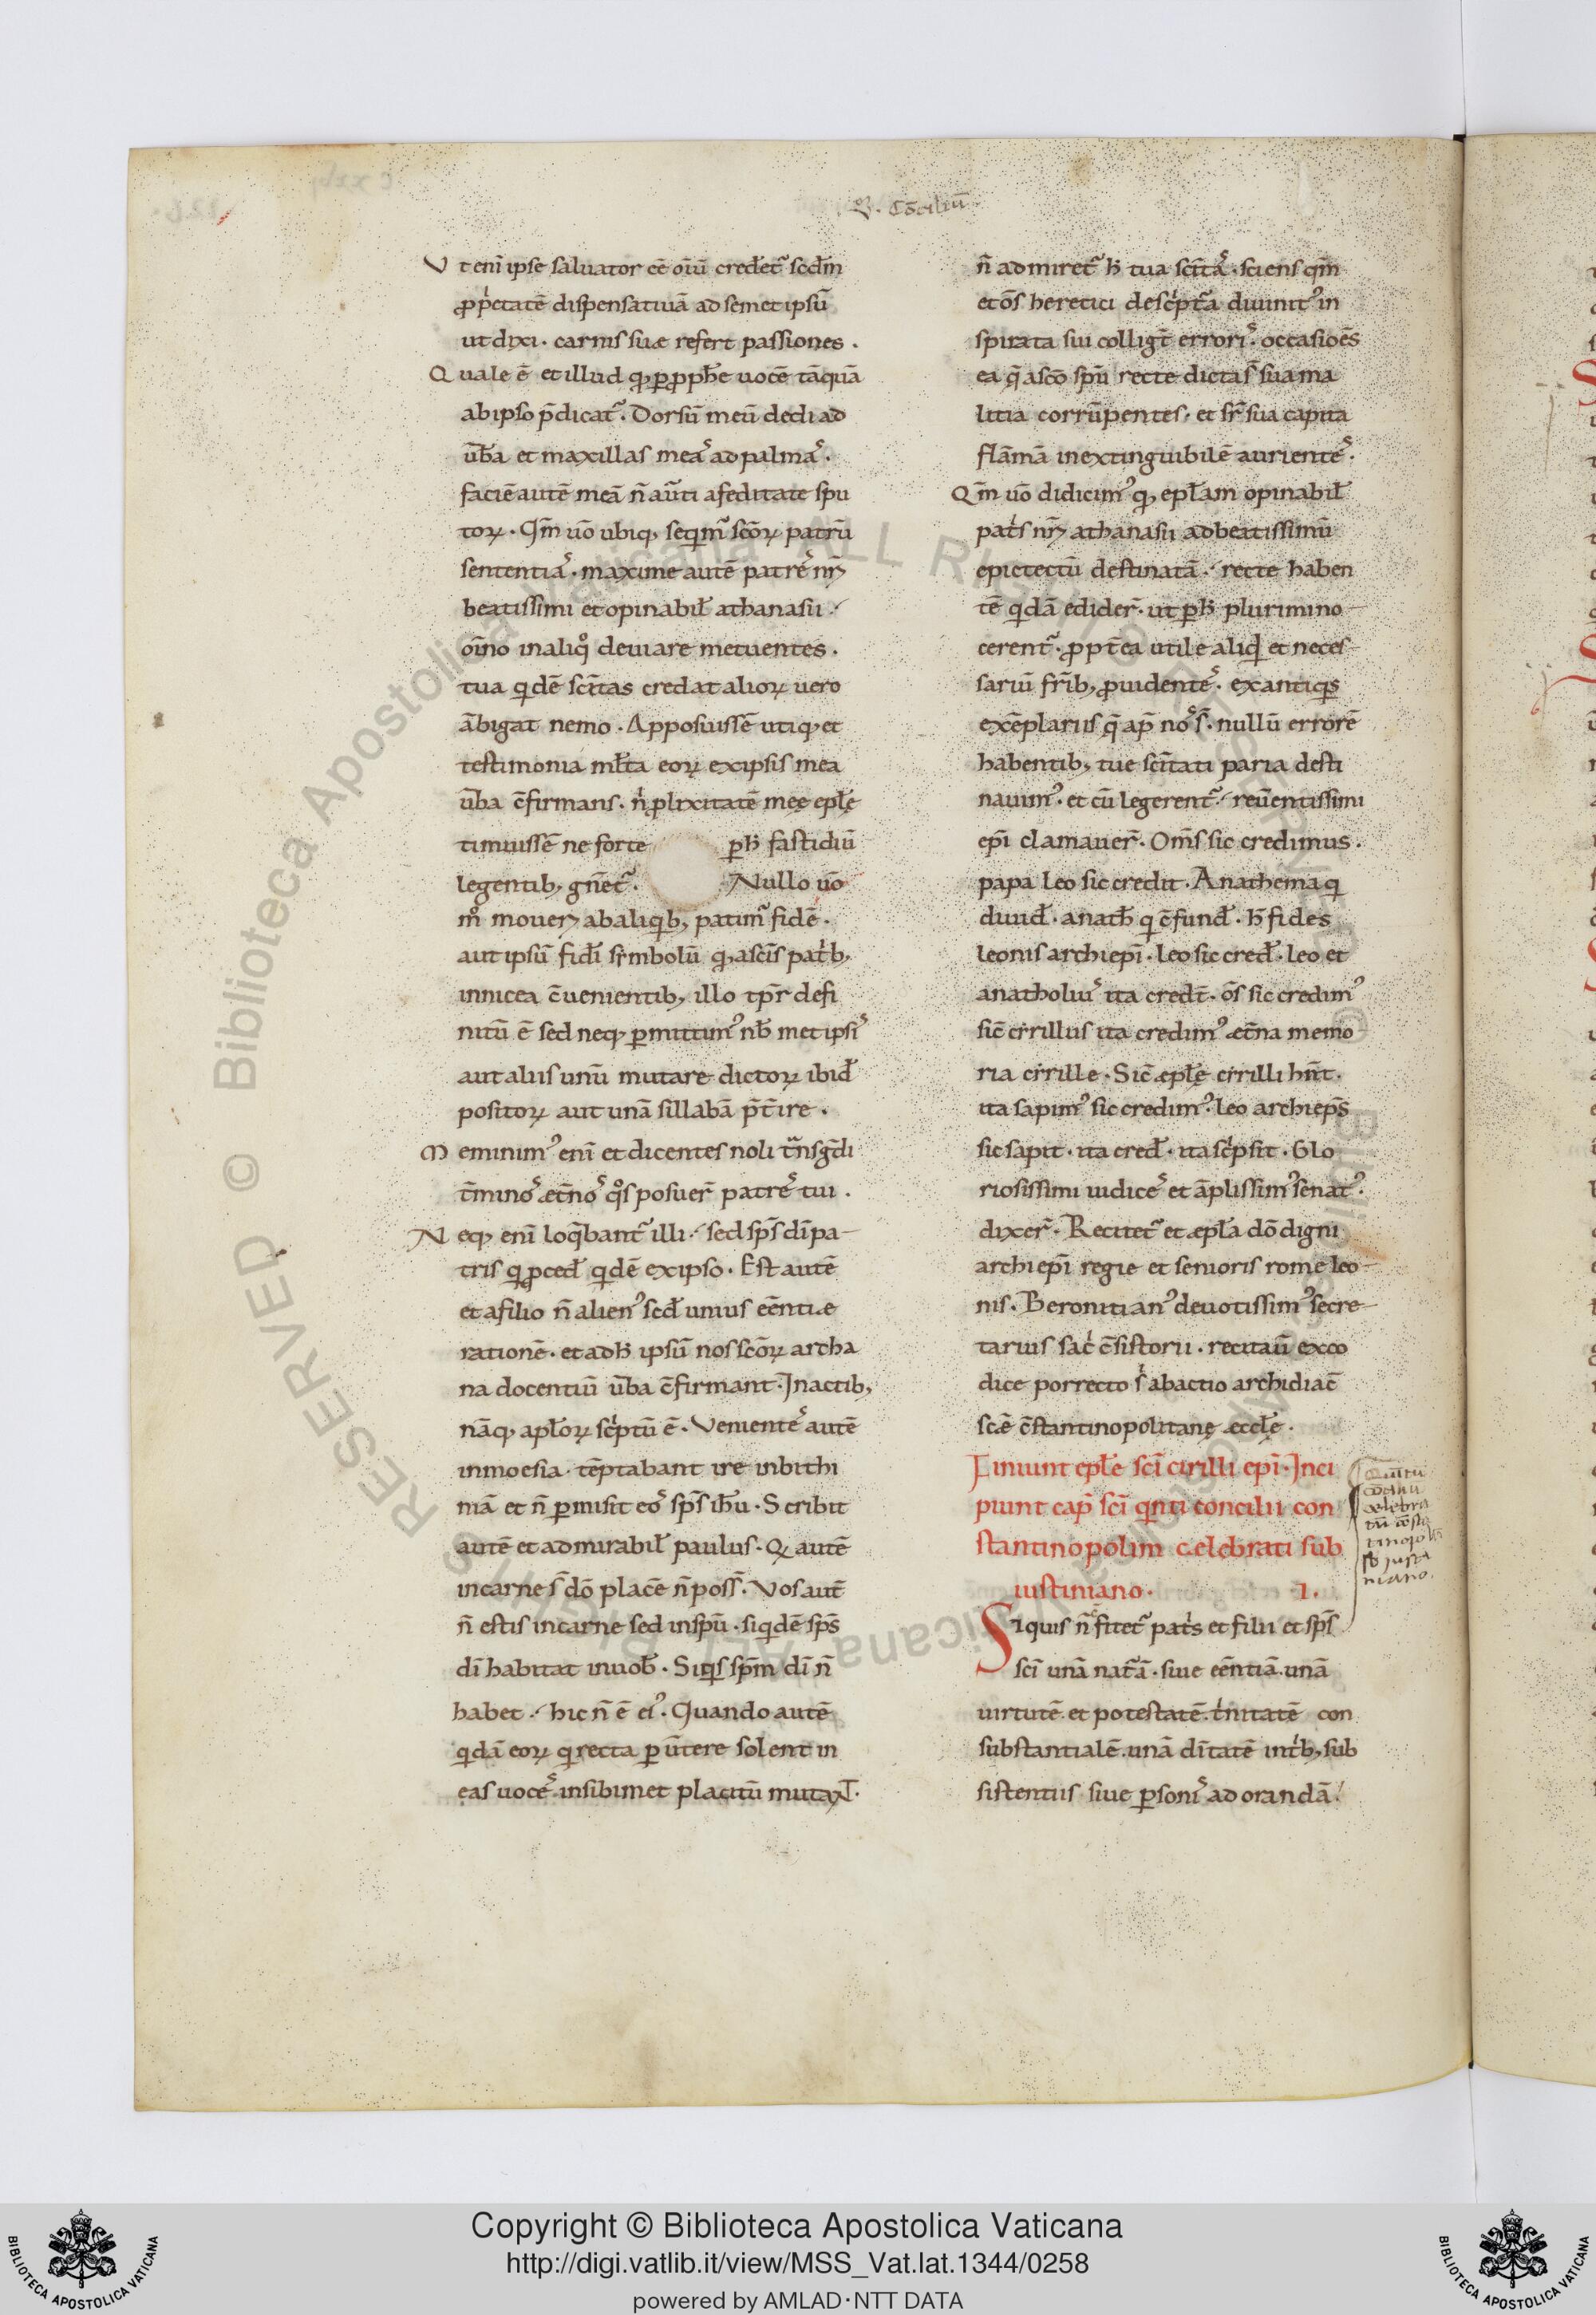 V. Cōciliū
Vt enī ipse saluator eē oīū credet᷑ scd̄m
pp̍etatē dispensatiuā ad semet ipsū
ut dixi. carnis suæ refert passiones.
Quale ē et illud qđ ꝑ pph̄e uocē tāquā
ab ipso p̄dicat᷑. Dorsū meū dedi ad
ūba et maxillas meas ad palmas.
faciē autē meā n̄ aūti a feditate spu
toꝝ. Qm̄ uō ubiq; seqͥm᷑ scōꝝ patrū
sententias. maxime autē patres nr̄i
beatissimi et opinabił athanasii.
oīno in aliqͦ deuiare metuentes.
tua qͥdē scītas credat alioꝝ uero
ābigat nemo. Apposuissē utiq; et
testimonia ml̄ta eoꝝ ex ipsis mea
ūba c̄firmans. n̍ plixitatē meę epłę
timuissē ne forte ꝑ h̄ fastidiū
legentib; gn̄et᷑. Nullo uō
mͦ moueri ab aliqͥb; patim᷑ fidē.
aut ipsū fidī sẏmbolū qđ a scīs patͥb;
in nicea c̄uenientib; illo tp̄r defi
nitū ē sed neq; ꝑmittim᷒ nb̄ met ipsis
aut aliis unū mutare dictoꝝ ibiđ
positoꝝ aut unā sillabā p̄t̄ire.
Meminim᷒ enī et dicentes noli tn̄sgd̄i
t̄minos æt̄nos qͦs posuer̄ patres tui.
Neq; enī loq̄bant᷑ illi. sed sp̄s dī pa
tris qͥ ꝓceđ qͥdē ex ipso. Est autē
et a filio n̄ alien᷒ scđ unius eēntiæ
rationē. et ad h̄ ipsū nos scōꝝ archa
na docentiū ūba c̄firmant. In actib;
nāq; apłoꝝ scͥptū ē. Venientes autē
in moesia. tēptabant ire in bithi
niā et n̄ ꝑmisit eos sp̄s ih̄u. Scribit
autē et admirabił paulus. Qͥ autē
in carne s̄ dō placē n̄ poss̄. Vos aut̄
n̄ estis in carne sed in sp̄u. siqͥdē sp̄s
dī habitat in uob̄. Siqͥs sp̄m dī n̄
habet. hic n̄ ē ei᷒. Quando autē
qͥdā eoꝝ qͥ recta ꝑūtere solent in
eas uoces. in sibimet placitū mutaN̄T.
n̄ admiret᷑ h̄ tua scītas. sciens qm̄
et ōs heretici de scͥpt᷑a diuinit᷒ in
spirata sui colligt̄ erroris. occasioēs
ea q̄ a scō sp̄u recte dicta s̄ sua ma
litia corrūpentes. et sr̄ sua capita
flāmā inextinguibilē aurientes.
Qm̄ uō didicim᷒ qđ epłam opinabił
patͥs nr̄i athanasii ad beatissimū
epictectū destinatā. recte haben
tē qͥdā edider̄. ut ꝑ h̄ plurimi no
cerent᷑. ꝓpt̄ea utile aliqđ et neces
sariū fr̄ib; ꝓuidentes. ex antiqͥs
exēplariis q̄ ap̄ nos s̄. nullū errorē
habentib; tue scītati paria desti
nauim᷒. et cū legerent᷑. reūentissimi
epī clamauer̄. Om̄s sic credimus.
papa leo sic credit. Anathema qͥ
diuiđ. anath̄ qͥ c̄funđ. h̄ fides
leonis archiepī. leo sic cređ. leo et
anatholius ita credt̄. ōs sic credim᷒
sic̄ cẏrillus ita credim᷒ æt̄na memo
ria cẏrille. Sic̄ æpłę cẏrilli hn̄t.
ita sapim᷒ sic credim᷒. leo archiep̄s
sic sapit. ita cređ. ita scͥpsit. Glo
riosissimi iudices et āplissim᷒ senat᷒.
dixer̄. Recitet᷑ et æpła dō digni
archiepī regie et senioris rome leo
nis. Beronitian᷒ deuotissim᷒ secre
tarius sacͥ c̄sistorii. recitaū ex co
dice porrecto sͥ ab actio archidiac̄
scǣ c̄stantinopolitanę æccłę.
Finiunt epłe scī cirilli epī. Inci
piunt cap̄ scī qͥnti concilii con
stantinopolim celebrati sub
iustiniano. I.
Quītū
cōciliū
celebra
tū cōstā
tinopoł
sb̄ justi
niano.
Si quis n̄ c̄fitet᷑ patͥs et filii et sp̄s
scī unā nat᷑ā. siue eēntiā. unā
uirtutē. et potestatē. tͥnitatē con
substantialē. unā dītatē in tͥb; sub
sistentiis siue ꝑsonis adorandā.
Copyright © Biblioteca Apostolica Vaticana
http://digi.vatlib.it/view/MSS_Vat.lat.1344/0258
powered by AMLAD·NTT DATA